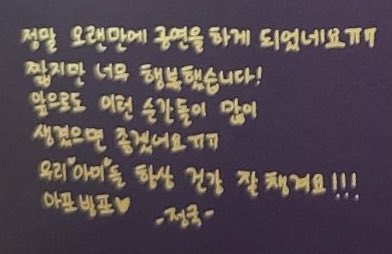 정말 오랜만에 공연을 하게 되었네요ㅠㅠ
짧지만 너무 행복했습니다!
앞으로도 이런 순간들이 많이
생겼으면 좋겠어요ㅠㅠ
우리"아미"들 항상 건강 잘 챙겨요!!!
아포방포♥
-정국-